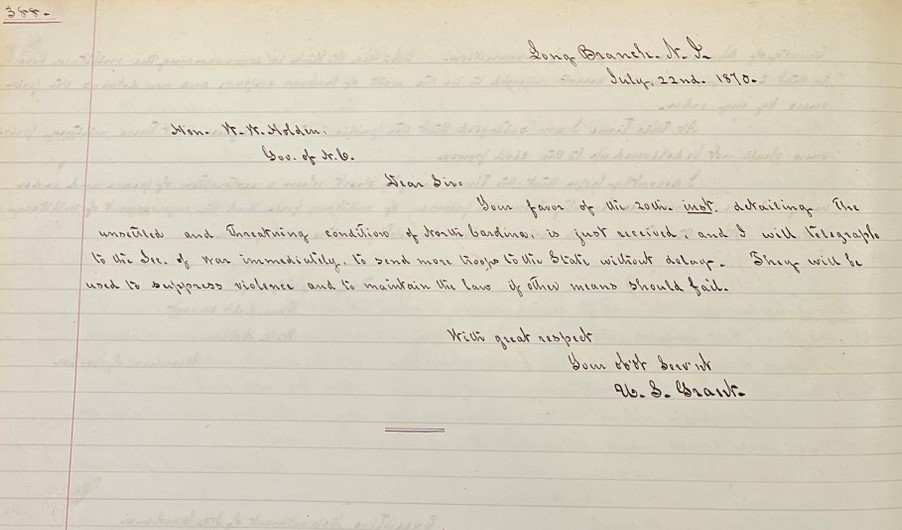 388.
Long Branch. N. J.
July, 22nd. 1870.
Hon. W. W. Holden;
Gov. of N. C.
Dear Sir:
Your favor of the 20th. inst. detailing the
unsettled and threatning condition of North Carolina, is just received, and I will telegraph
to the Sec. of War immediately, to send more troops to the State without delay. They will be
used to suppress violence and to maintain the law if other means should fail.
With great respect
Your ob'dt Serv'nt
U. S. Grant.